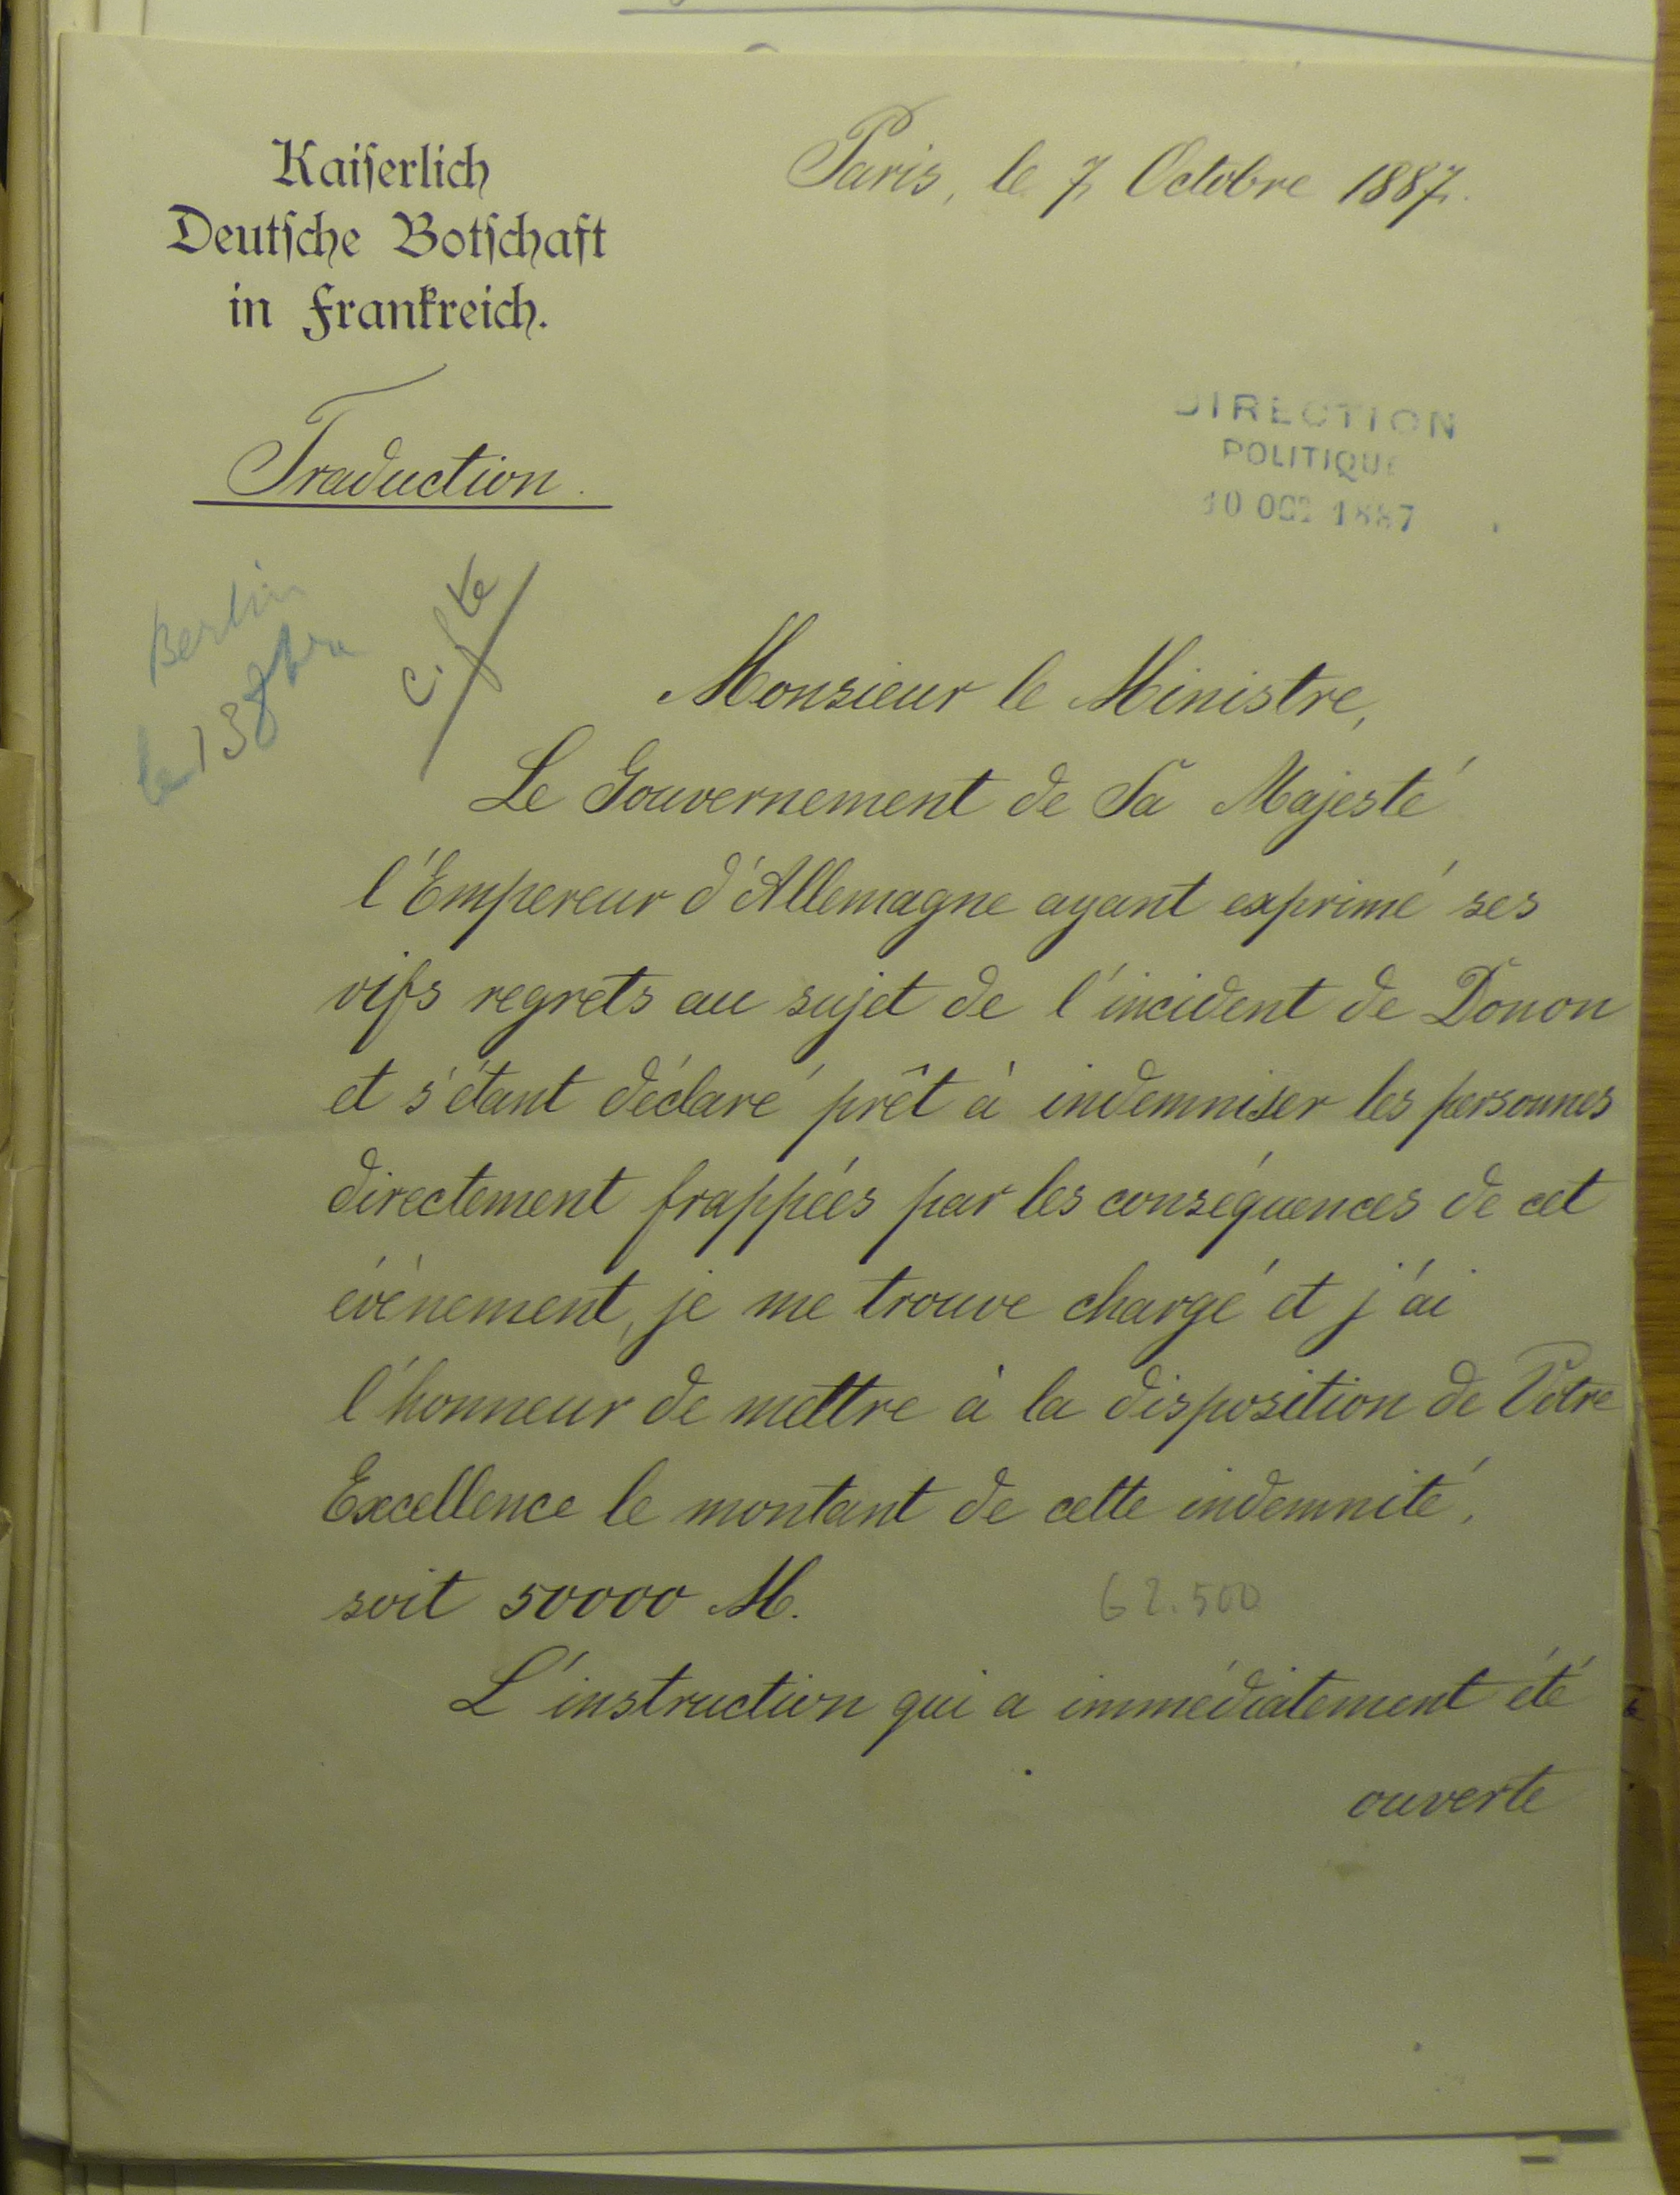 Kaiserlich
Deutsche Botschaft
in Frankreich.
Paris, le 7 Octobre 1887.
Traduction.
DIRECTION
POLITIQUE
10 OCT 1887
Berlin
le 13 8bre
Monsieur le Ministre,
Le Gouvernement de Sa Majesté
l'Empereur d'Allemagne ayant exprimé ses
vifs regrets au sujet de l'incident de Donon
et s'étant déclaré prêt à indemniser les personnes
directement frappées par les conséquences de cet
événement, je me trouve chargé et j'ai
l'honneur de mettre à la disposition de Votre
Excellence le montant de cette indemnité,
soit 50000 M.
62.500
L'instruction qui a immédiatement été
ouverte